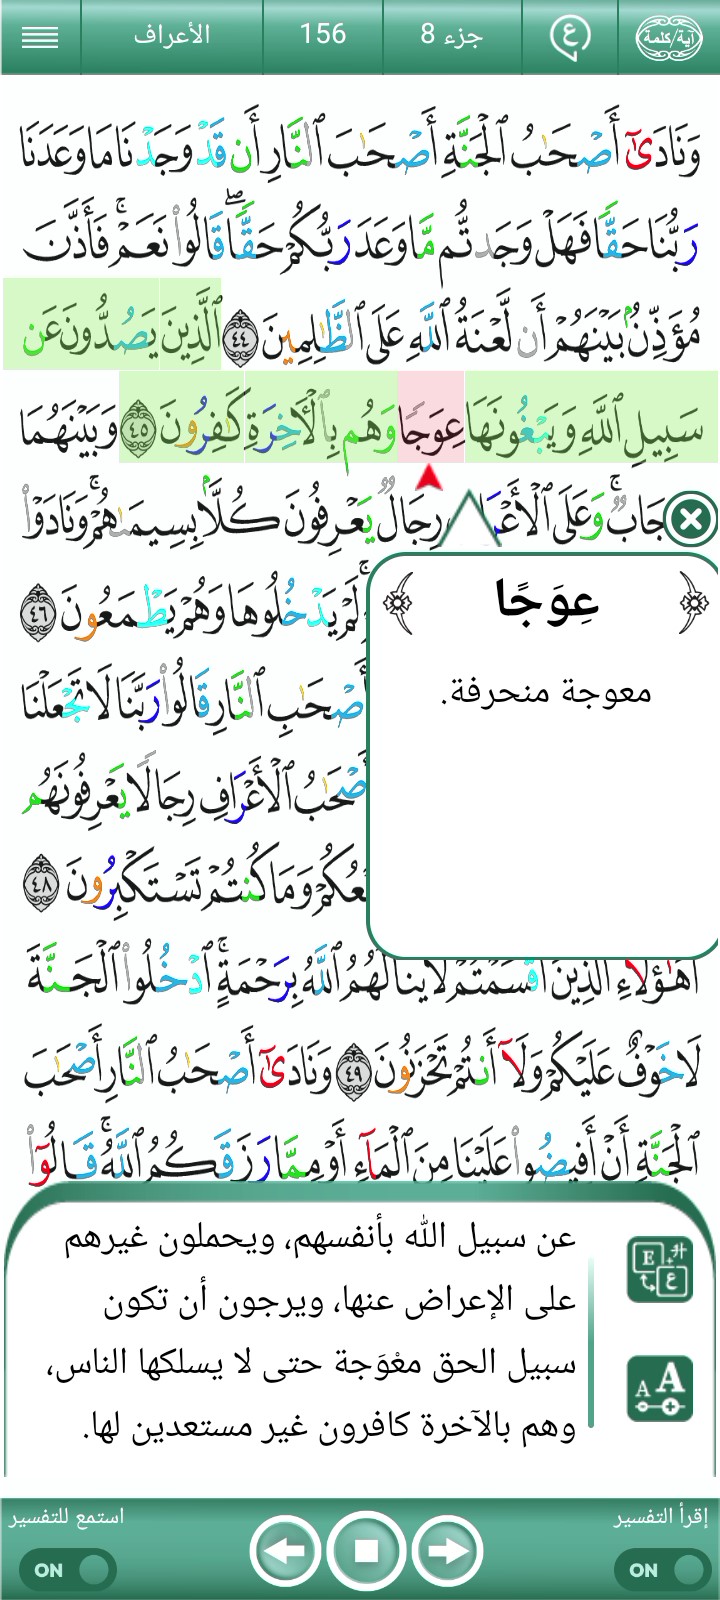 آية/كلمة
ع
جزء 8
156
الأعراف
وَنَادَىٰٓ أَصْحَٰبُ ٱلْجَنَّةِ أَصْحَٰبَ ٱلنَّارِ أَن قَدْ وَجَدْنَا مَا وَعَدَنَا
رَبُّنَا حَقًّا فَهَلْ وَجَدتُّم مَّا وَعَدَ رَبُّكُمْ حَقًّا ۖ قَالُوا۟ نَعَمْ ۚ فَأَذَّنَ
مُؤَذِّنٌۢ بَيْنَهُمْ أَن لَّعْنَةُ ٱللَّهِ عَلَى ٱلظَّٰلِمِينَ ٤٤ ٱلَّذِينَ يَصُدُّونَ عَن
سَبِيلِ ٱللَّهِ وَيَبْغُونَهَا عِوَجًا وَهُم بِٱلْءَاخِرَةِ كَٰفِرُونَ ٤٥ وَبَيْنَهُمَا
جَابٌ ۚ وَعَلَى ٱلْأَعْرَا رِجَالٌ يَعْرِفُونَ كُلًّۢا بِسِيمَىٰهُمْ ۚ وَنَادَوْا۟
لَمْ يَدْخُلُوهَا وَهُمْ يَطْمَعُونَ ٤٦
أَصْحَٰبِ ٱلنَّارِ قَالُوا۟ رَبَّنَا لَا تَجْعَلْنَا
أَصْحَٰبُ ٱلْأَعْرَافِ رِجَالًا يَعْرِفُونَهُم
عُكُمْ وَمَا كُنتُمْ تَسْتَكْبِرُونَ ٤٨
أَهَٰٓؤُلَآءِ ٱلَّذِينَ أَقْسَمْتُمْ لَا يَنَالُهُمُ ٱللَّهُ بِرَحْمَةٍ ۚ ٱدْخُلُوا۟ ٱلْجَنَّةَ
لَا خَوْفٌ عَلَيْكُمْ وَلَآ أَنتُمْ تَحْزَنُونَ ٤٩ وَنَادَىٰٓ أَصْحَٰبُ ٱلنَّارِ أَصْحَٰبَ
ٱلْجَنَّةِ أَنْ أَفِيضُوا۟ عَلَيْنَا مِنَ ٱلْمَآءِ أَوْ مِمَّا رَزَقَكُمُ ٱللَّهُ ۚ قَالُوٓا۟
عِوَجًا
معوجة منحرفة.
عن سبيل الله بأنفسهم، ويحملون غيرهم
على الإعراض عنها، ويرجون أن تكون
سبيل الحق معْوَجة حتى لا يسلكها الناس،
وهم بالآخرة كافرون غير مستعدين لها.
إقرأ التفسير
استمع للتفسير
ON
ON